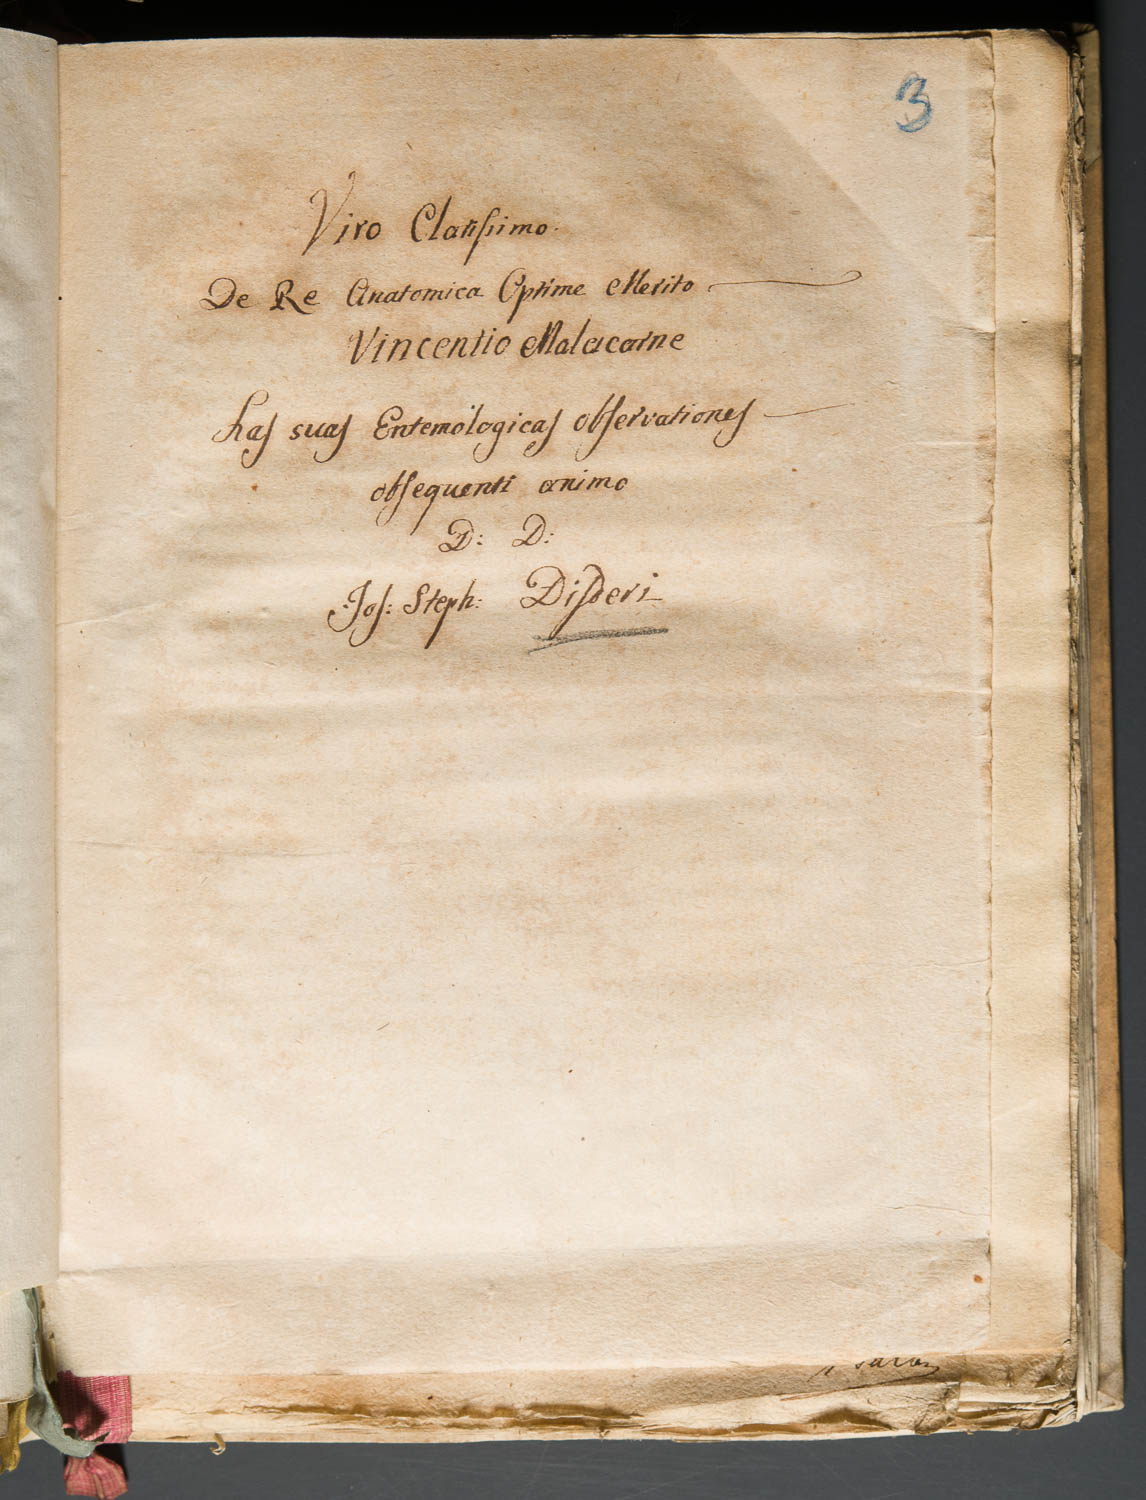 3
Viro Clarissimo.
De Re Anatomica Optime Merito
Vincentio Malacarne
has suas Entomologicas observationes
obsequenti animo
D: D:
Jos: Steph: Disderi